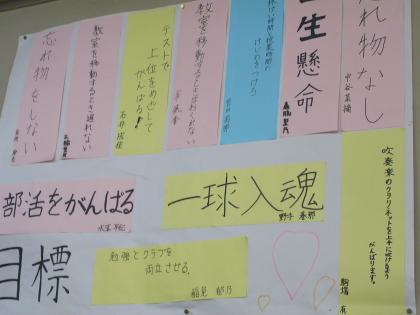 忘れ物なし
中谷菜摘
生懸命
休けい時間と授業時間の
けじめをつける
教室を移動するときおくれない
テストで
上位をめざして
がんばる!
石井
教室を移動するとき遅れない
忘れ物をしない
吹奏楽のクラリネットを上手に吹けるよう
がんばります。
一球入魂
野手
部活をがんばる
勉強とクラブを
両立させる。
稲見 郁乃
目標